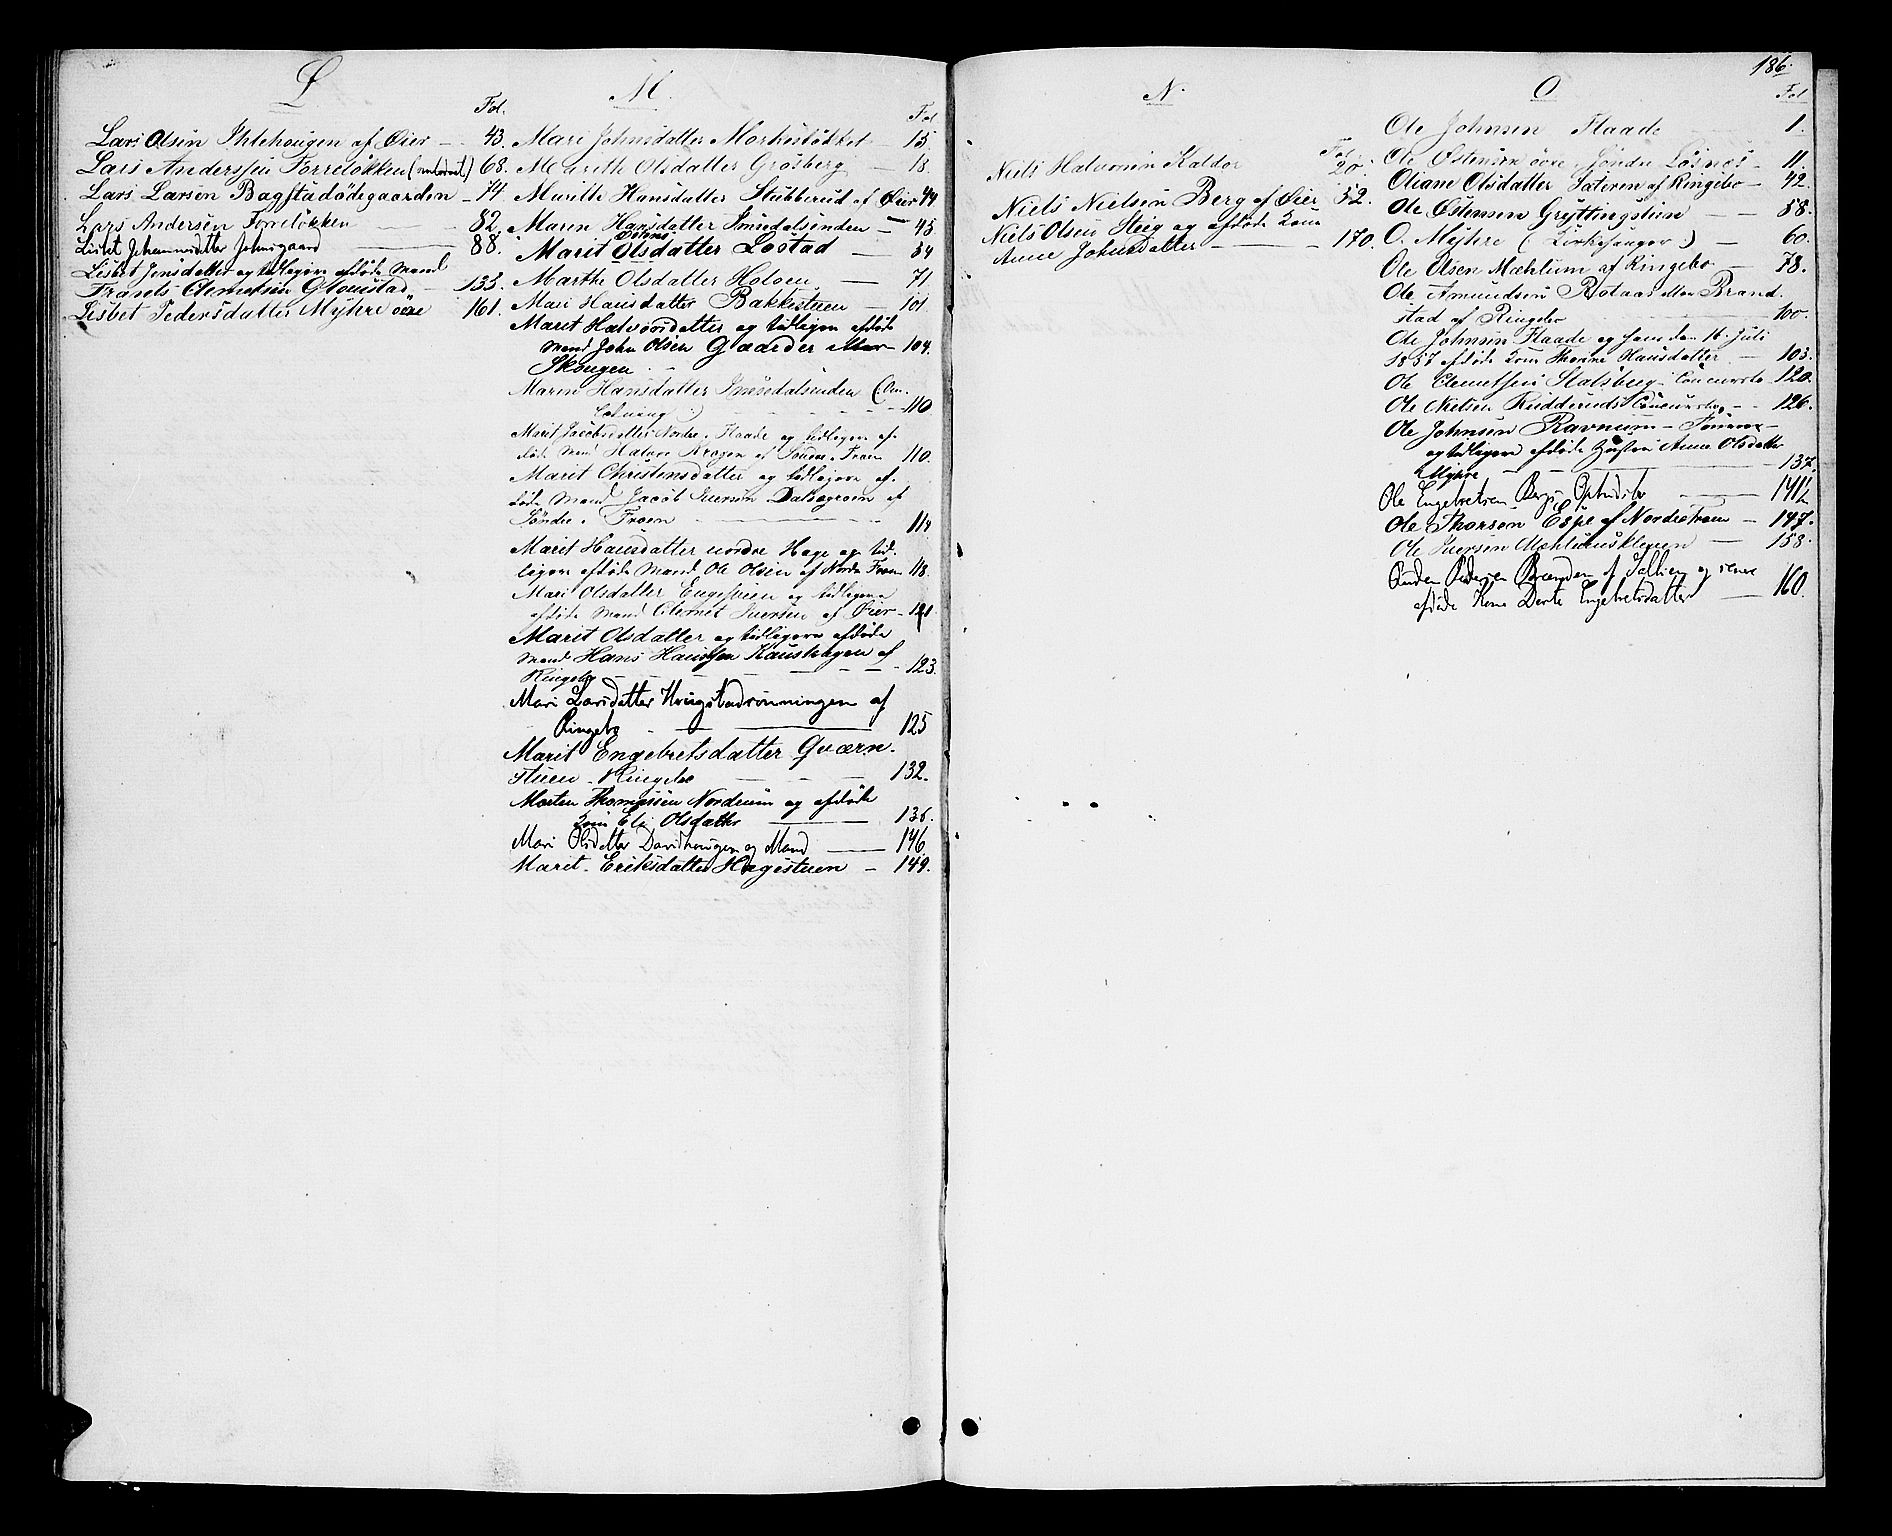 L.
Fol.
Lars Olsen Ihlehougen af Øier 43.
Lars Anderssen Forreløkken 68.
Lars Larsen Bagstadødegaarden 74
Lars Andersen Forreløkken 82.
Lisbet Johannesdatter Johnsgaard 88.
Lisbet Jensdatter og tidligere afdøde Mand
Frants Clemetsen Glomstad 133.
Lisbet Pedersdatter Myhre øvre 161.
M.
Fol
Mari Johnsdatter Morkestøkket 15.
Mareth Olsdatter Grosberg 18.
Maritte Hansdatter Stubberud af Øier 44
Maren Hansdatter Smedalsenden 45
Østens
Marit Olsdatter Lostad 54
Marthe Olsdatter Holoen 71
Mari Hansdatter Bakkestuen 101.
Marit Halvorsdatter og tidligere afdøde
Mand John Olsen Gaarder eller 104.
Skougen
Maren Hansdatter Smedalsenden (An.
Ledning) 110
Marit Jacobsdatter Nordre Flaade og tidligere af-
døde Mand Halvor Kragen af Søndre Froen 110.
Marit Christensdatter og tidligere af-
døde Mand Jacob Iversen Dalsegroen af
Søndre Froen 114
Marit Hansdatter nordre Hage og tid-
ligere afdøde Mand Ole Olsen af Nordre Froen 118.
Marit Olsdatter Engestuen og tidligere
afdøde Mand Clemet Iversen af Øier 121
Marit Olsdatter og tidligere afdøde
Mand Hans Hanssen Kaushagen af
Ringebo 123.
Mari Larsdatter Krugstadrønningen af
Ringebo 125
Marit Engebretsdatter Qværn-
stuen Ringebo 132.
Morten Thomassen Nordrum og afdøde
Kone Eli Olsdatter 136.
Mari Olsdatter Davidhougen og Mand 146
Marit Eriksdatter Hagestuen 149.
N.
Fol
Niels Halvorsen Kaldor 20.
Niels Nielsen Berg af Øier 52.
Niels Olsen Steig og afdøde Kone
Anne Johnsdatter 170.
186.
O
Fol
Ole Johnsen Flaade 1.
Ole Østensen øvre Søndre Løsnes 11.
Oliane Olsdatter Sæteren af Ringebo 42.
Ole Østensen Gryttingstuen 58.
O. Myhre (Kirkesanger) 60.
Ole Olsen Mæhlum af Ringebo 78.
Ole Amundsen Rolaas eller Brand-
stad af Ringebo 100.
Ole Johnsen Flaade og hans den 16 Juli
1857 afdøde Kone Thorine Hansdatter 103.
Ole Clemetsen Stalsberg Concursbo 120.
Ole Nielsen Rudderuds Concursbo 126.
Ole Johnsen Ravnum
og tidligere afdøde Hustru Anne Olsdatter
Myhre 137.
Ole Engebretsen Bergs Opbudsbo 141½
Ole Thorsen Espe af Nordre Froen 147.
Ole Iversen Mæhlumskleven 158.
Pedersen Brænden af og
afdøde Kone Dorte Engebretsdatter 160.